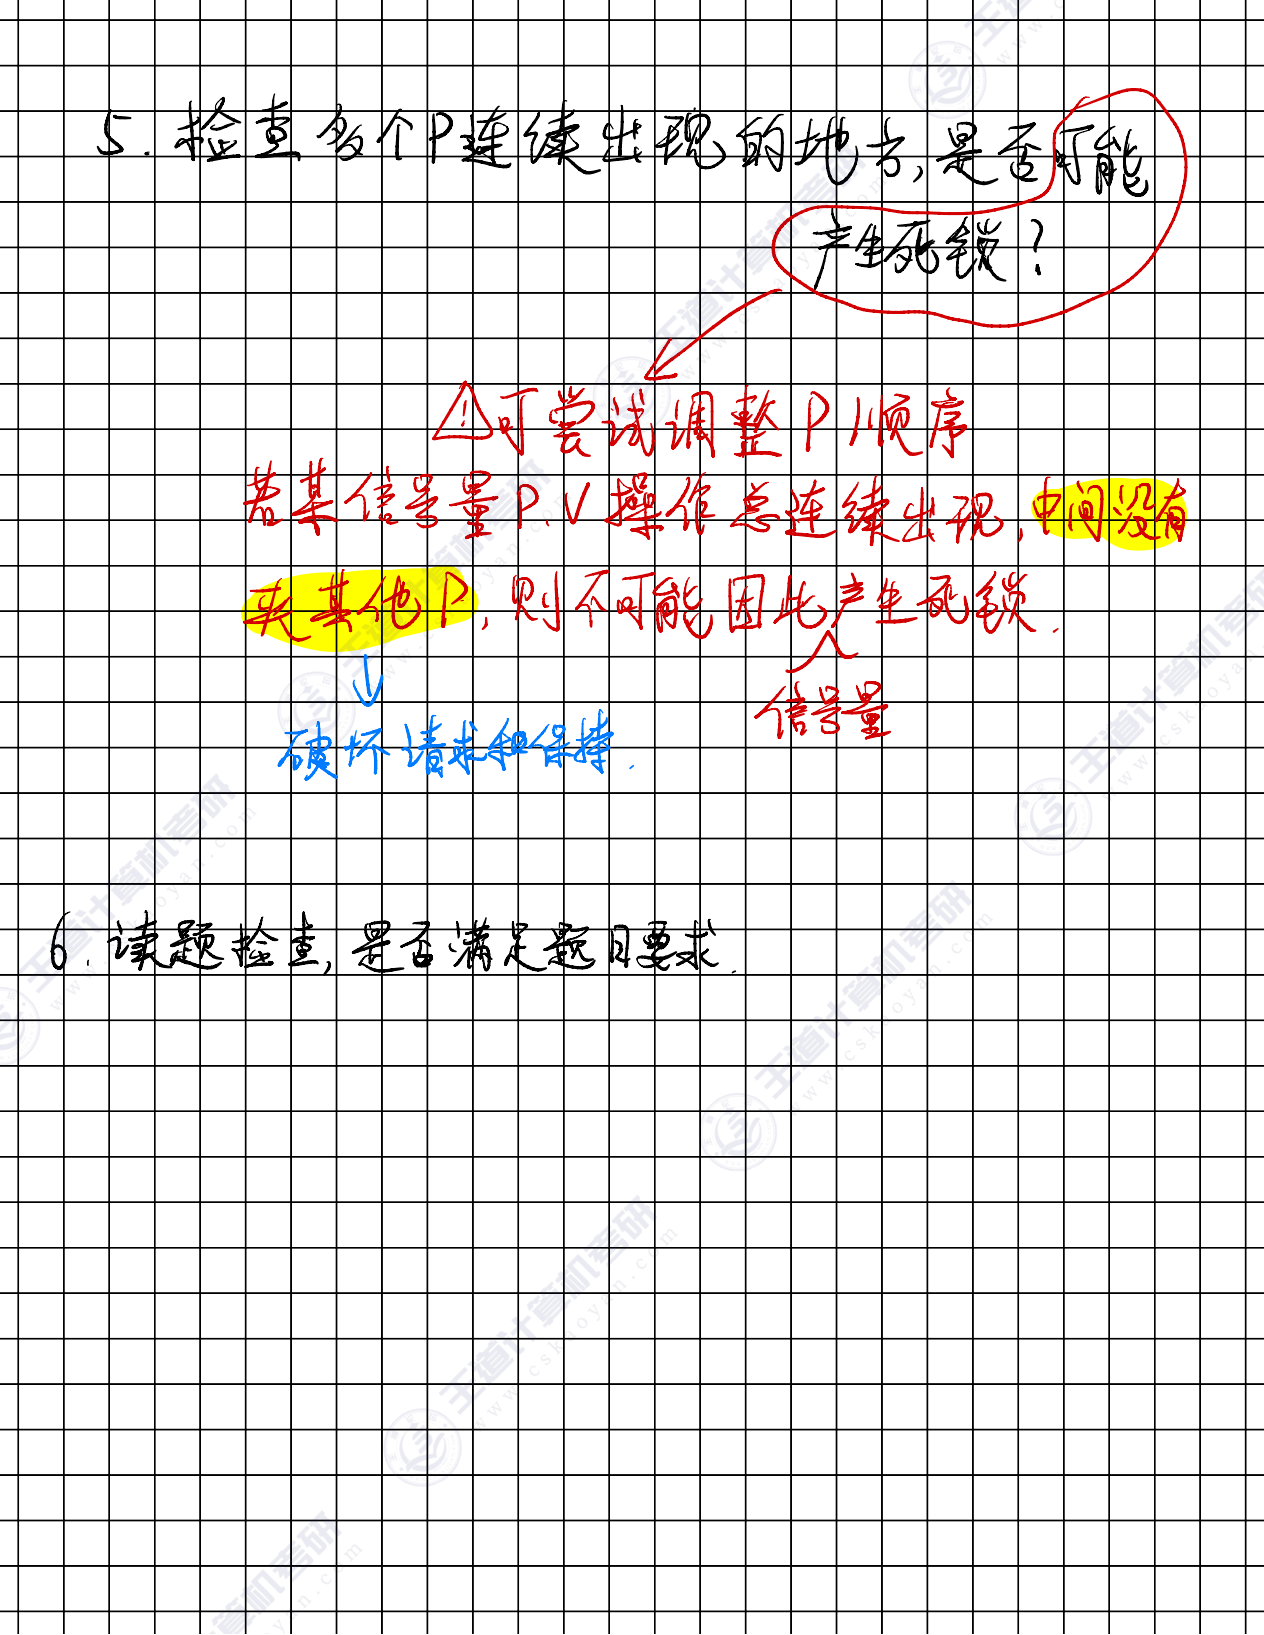 5. 检查多个P连续出现的地方,是否可能
产生死锁?
⚠可尝试调整P顺序
若某信号量P、V操作总连续出现,中间没有
夹其他P,则不可能因此产生死锁.
信号量
破坏请求和保持.
6. 读题检查,是否满足题目要求.
王道计算机考研
www.cskaoyan.com